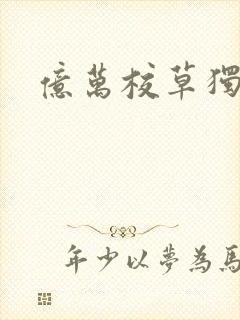 億萬校草獨
年少以夢為馬